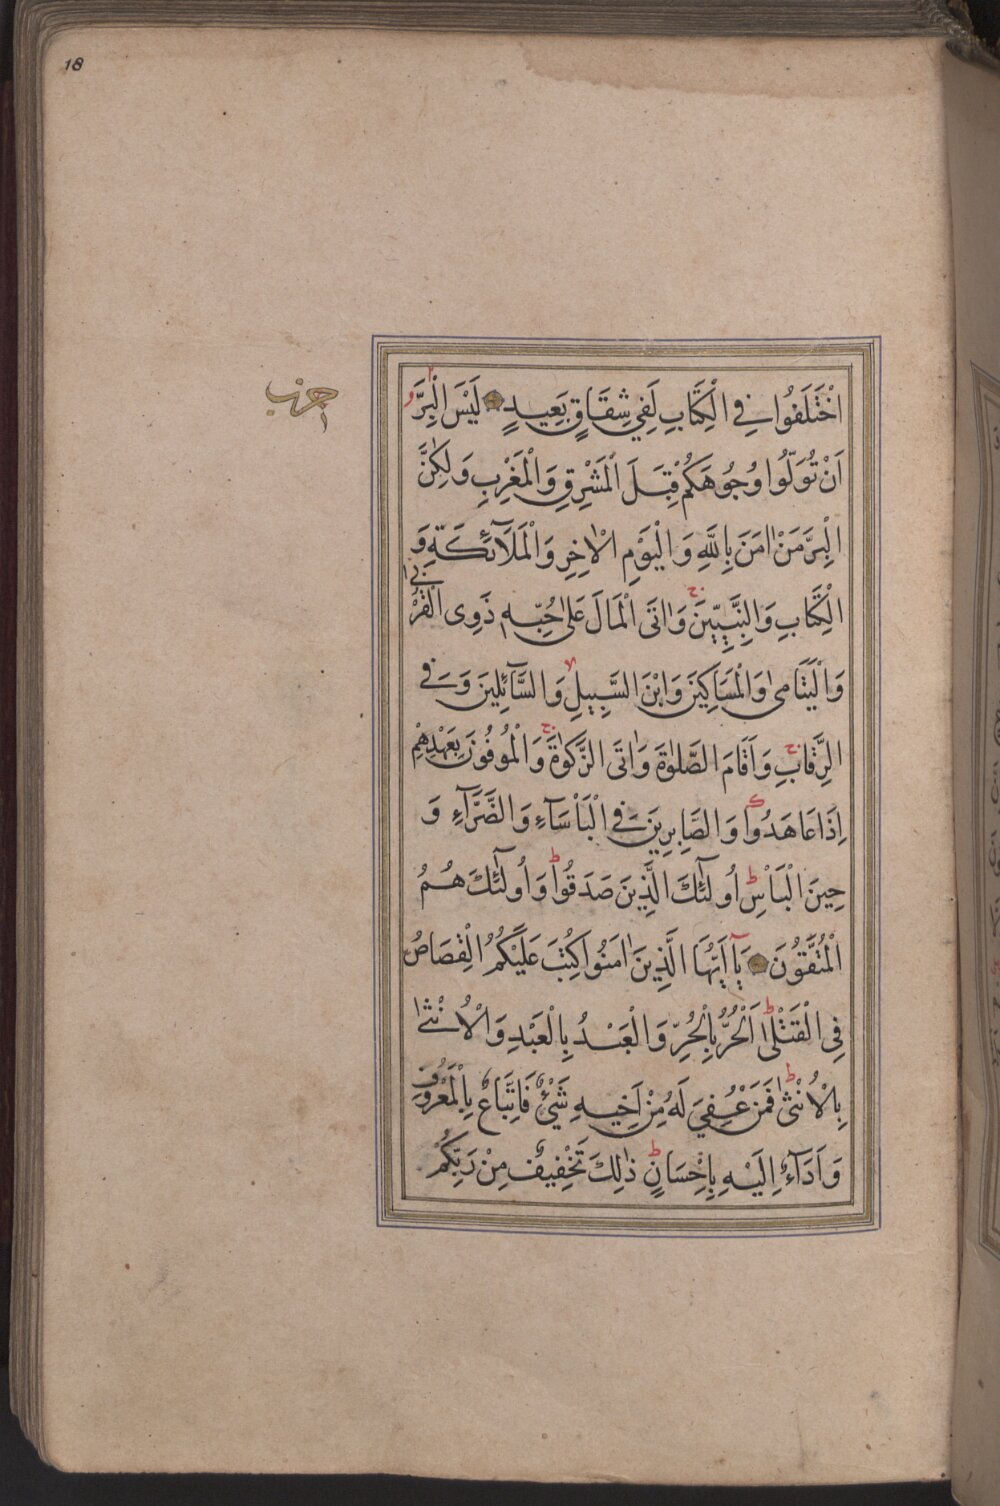 18
حزب
اخْتَلَفُوا فِي الْكِتَابِ لَفِي شِقَاقٍ بَعِيدٍ لَيْسَ الْبِرَّ
اَنْ تُوَلُّوا وُجُوهَكُمْ قِبَلَ الْمَشْرِقِ وَالْمَغْرِبِ وَلٰكِنَّ
الْبِرَّ مَنْ اٰمَنَ بِاللّٰهِ وَالْيَوْمِ الْاٰخِرِ وَالْمَلَآئِكَةِ وَ
الْكِتَابِ وَالنَّبِيِّينَ وَاٰتَى الْمَالَ عَلٰى حُبِّهِ ذَوِى الْقُرْبٰى
وَالْيَتَامٰى وَالْمَسَاكِينَ وَابْنَ السَّبِيلِ وَالسَّآئِلِينَ وَفِي
الرِّقَابِ وَاَقَامَ الصَّلٰوةَ وَاٰتَى الزَّكٰوةَ وَالْمُوفُونَ بِعَهْدِهِمْ
اِذَا عَاهَدُوا وَالصَّابِرِينَ فِي الْبَاْسَآءِ وَالضَّرَّآءِ وَ
حِينَ الْبَاْسِ اُولٰٓئِكَ الَّذِينَ صَدَقُوا وَاُولٰٓئِكَ هُمُ
الْمُتَّقُونَ يَآ اَيُّهَا الَّذِينَ اٰمَنُوا كُتِبَ عَلَيْكُمُ الْقِصَاصُ
فِي الْقَتْلٰى اَلْحُرُّ بِالْحُرِّ وَالْعَبْدُ بِالْعَبْدِ وَالْاُنْثٰى
بِالْاُنْثٰى فَمَنْ عُفِيَ لَهُ مِنْ اَخِيهِ شَيْءٌ فَاتِّبَاعٌ بِالْمَعْرُوفِ
وَاَدَآءٌ اِلَيْهِ بِاِحْسَانٍ ذٰلِكَ تَخْفِيفٌ مِنْ رَبِّكُمْ